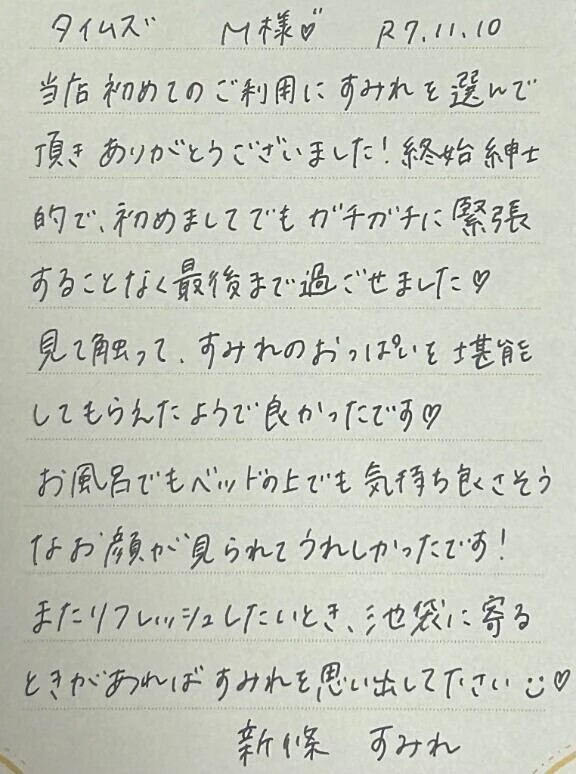 タイムズ M様♡ R7.11.10
当店初めてのご利用にすみれを選んで
頂きありがとうございました！終始紳士
的で、初めましてでもガチガチに緊張
することなく最後まで過ごせました♡
見て触って、すみれのおっぱいを堪能
してもらえたようで良かったです♡
お風呂でもベッドの上でも気持ち良さそう
なお顔が見られてうれしかったです！
またリフレッシュしたいとき、池袋に寄る
ときがあればすみれを思い出して下さい☺♡
新條 すみれ